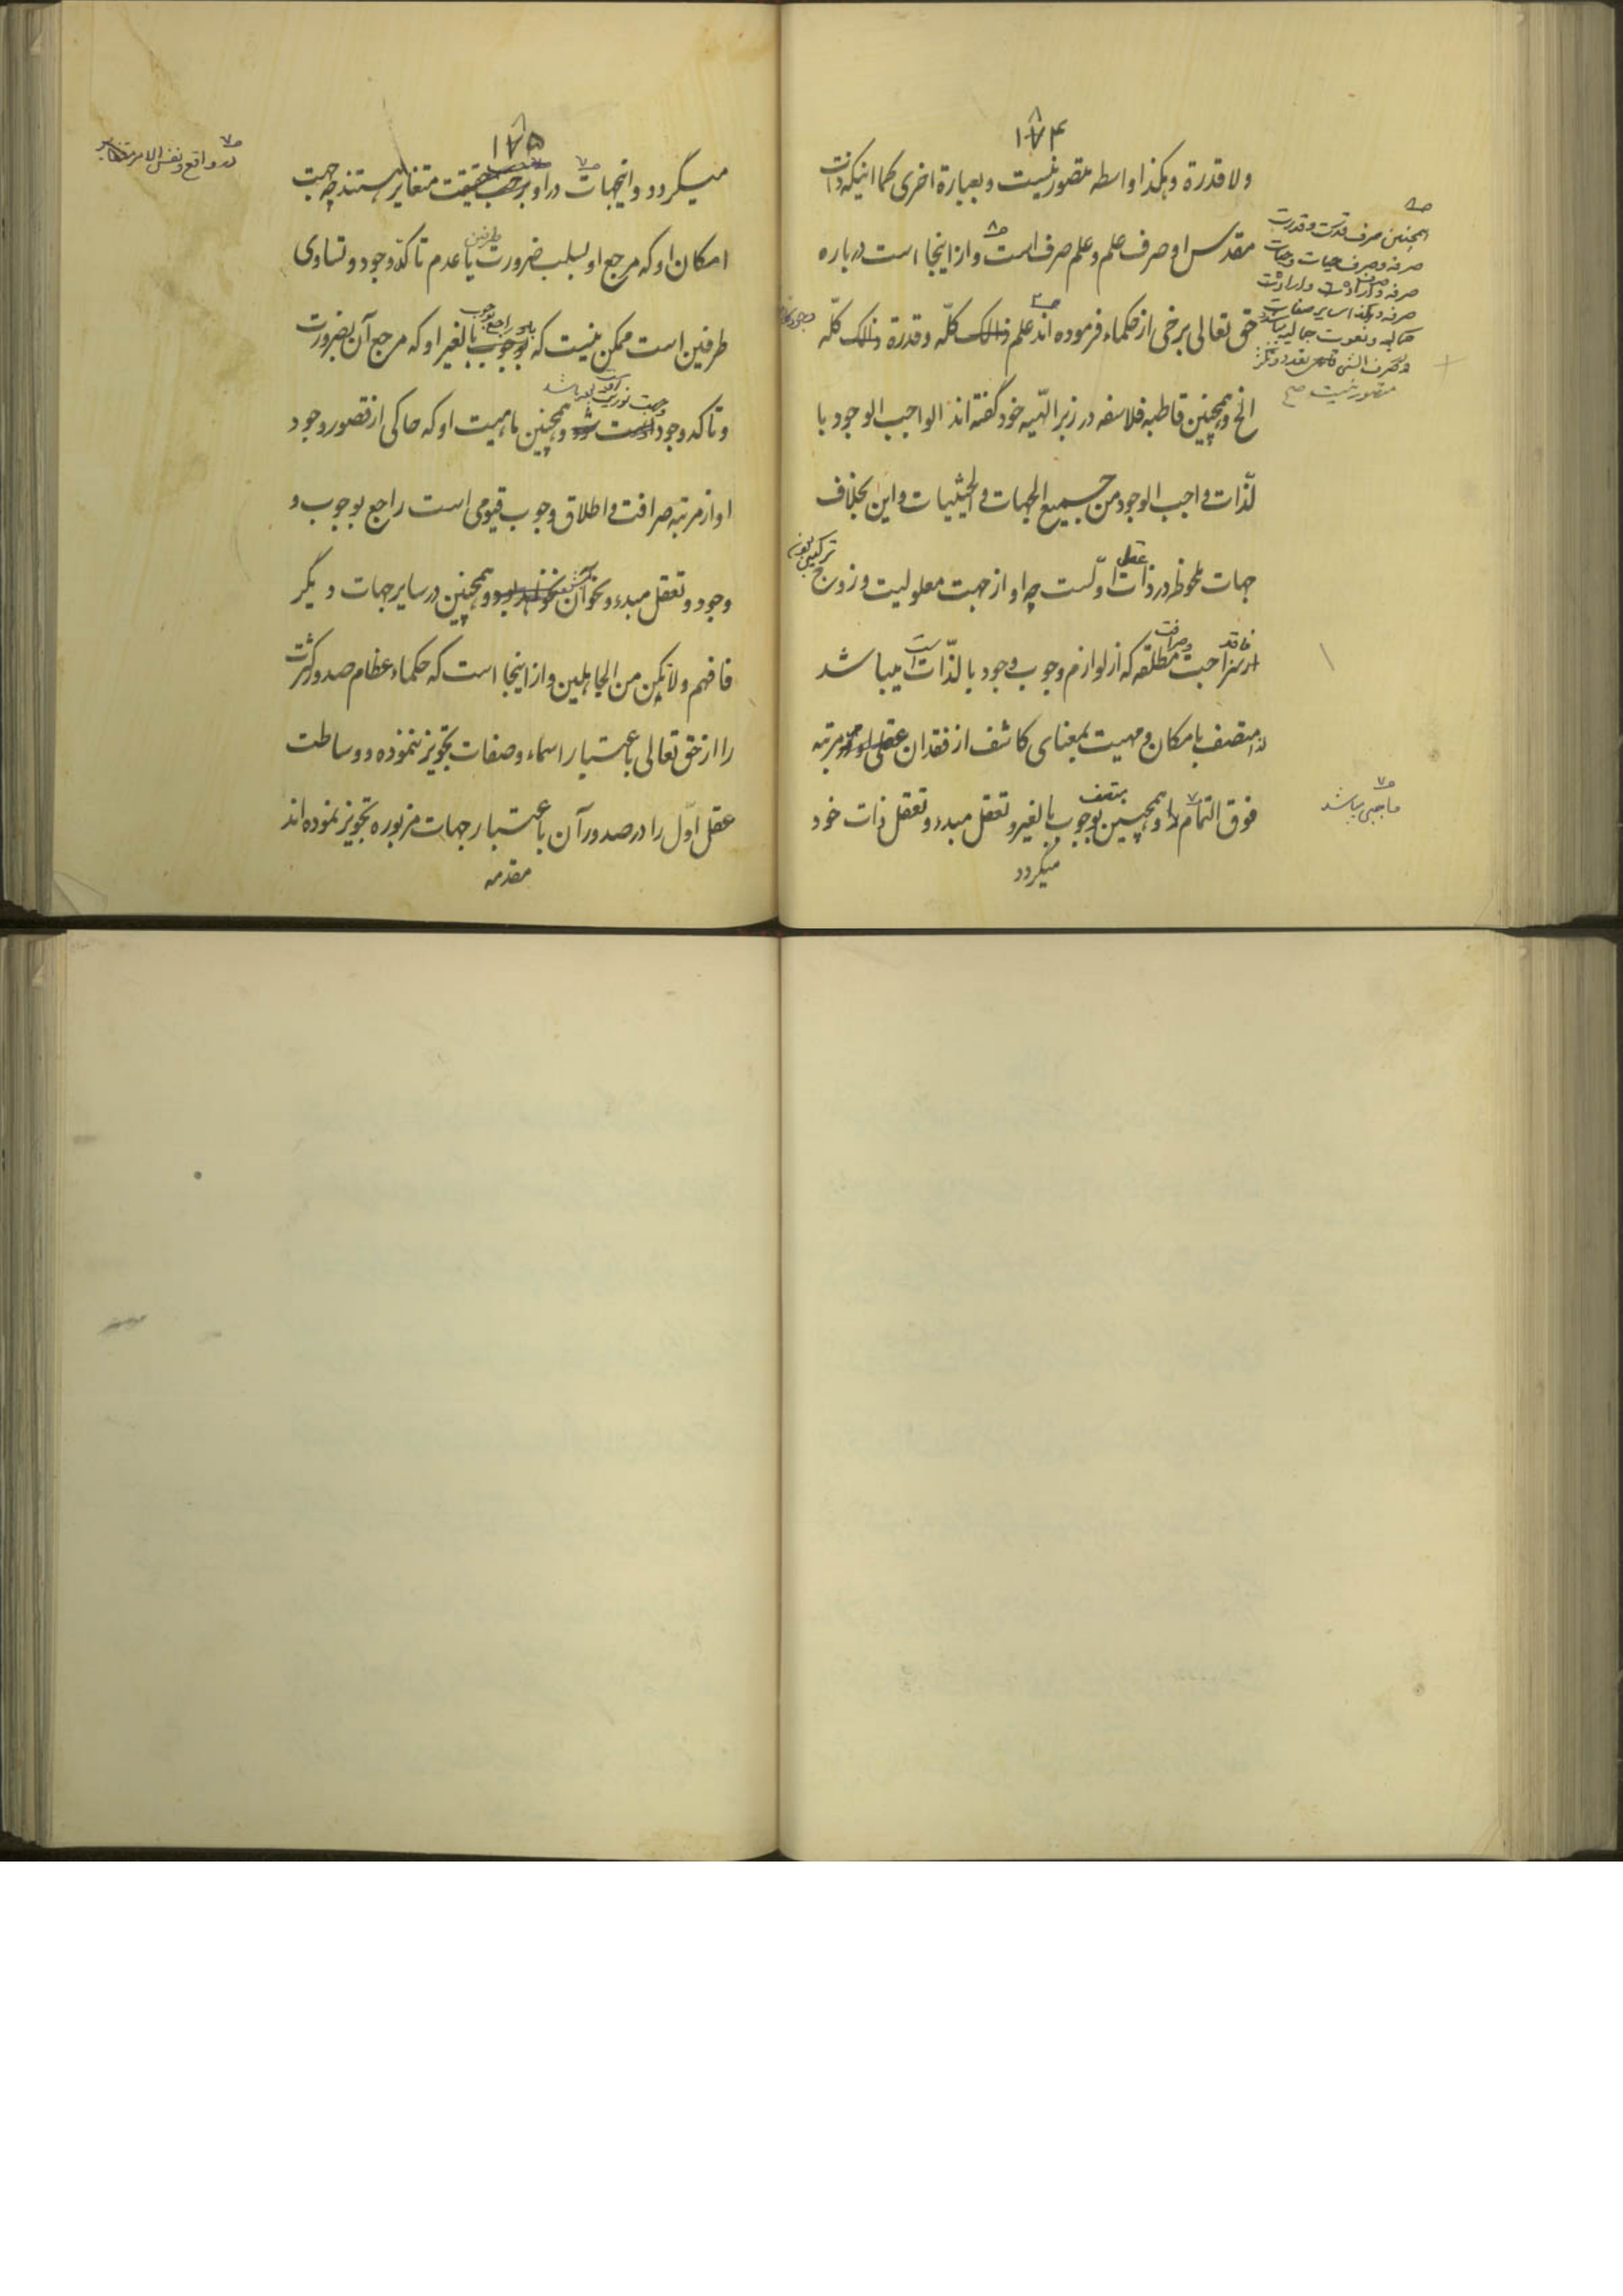 ۱۷۴
ولا قدرة وهكذا واسطه متصور نیست وبعبارة اخری کما اینکه ذات
مقدس او صرف علم وعلم صرف است واز اینجا است درباره
حق تعالی برخی از حکماء فرموده اند علم کلّه وقدرة کلّه
الخ وهمچنین قاطبه فلاسفه در زبر الهیّه خود گفته اند الواجب الوجود با
لذّات واجب الوجود من جمیع الجهات والحیثیات واین بخلاف
جهات ملحوظه در ذات عقل اوّلست چه او از جهت معلولیت وزوج ترکیبی
فاقد صراحت وصرافت مطلقه که از لوازم وجوب وجود بالذّات است میباشد
متصف بامکان ومهیت بمعنای کاشف از فقدان مرتبه
فوق التمام وهمچنین بوجوب بالغیر وتعقل مبدء وتعقل ذات خود متصف
میگردد
همچنین صرف قدرت وقدرت
صرفه وصرف حیات وحیات
صرفه وصرف ارادت وارادت
صرفه وهکذا سایر صفات
کمالیه ونعوت جمالیه میباشد
وصرف الشیء تعدد وتکثر
متصور نیست صح
۱۷۵
میگردد واینجهات در او متغایر هستند چه جهت
امکان او که مرجع او بسلب ضرورت طرفین یا عدم تاکّد وجود وتساوی
طرفین است ممکن نیست که راجع بوجوب بالغیر او که مرجع آن بضرورت
وتاکد وجود وهمچنین ماهیت او که حاکی از قصور وجود
او از مرتبه صرافت واطلاق وجوب قیومی است راجع بوجوب و
وجود وتعقل مبدء ونحو آن وهمچنین در سایر جهات دیگر
فافهم ولا تکن من الجاهلین واز اینجا است که حکماء عظام صدور کثرت
را از حق تعالی باعتبار اسماء وصفات تجویز ننموده ووساطت
عقل اوّل را در صدور آن باعتبار جهات مزبوره تجویز نموده اند
مقدمه
در واقع ونفس الامر